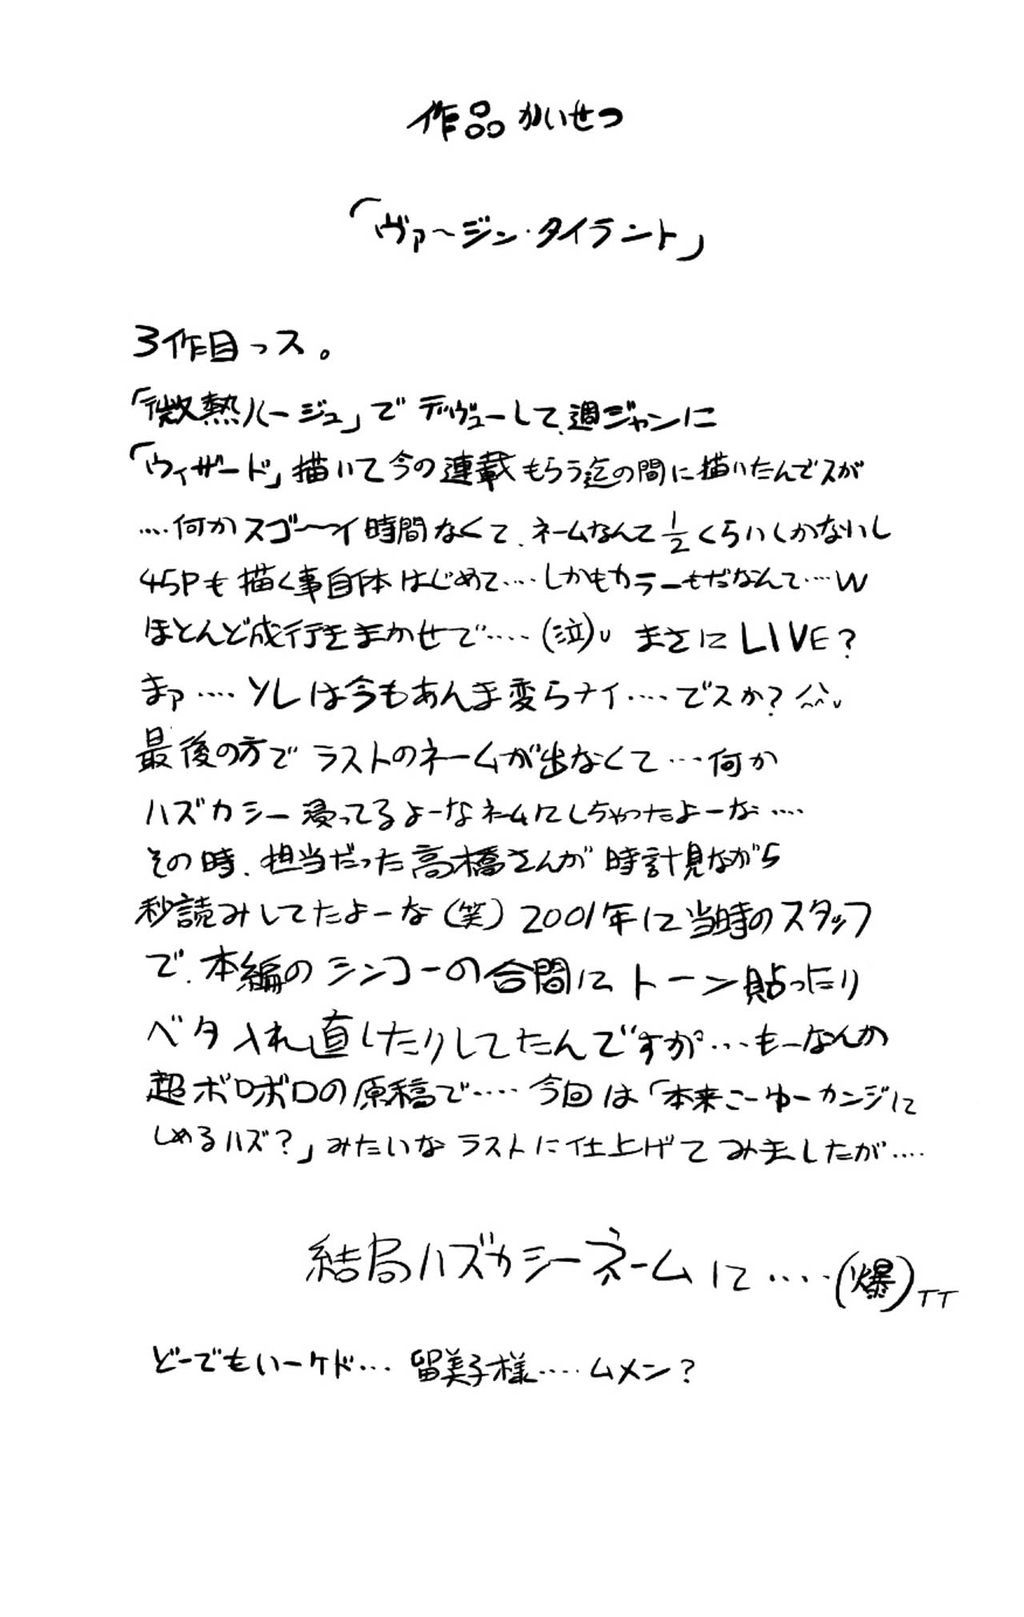 作品かいせつ
「ヴァ〜ジン・タイラント」
3作目っス。
「微熱ルージュ」でデヴューして、週ジャンに
「ウィザード」描いて今の連載もらう迄の間に描いたんでスが
....何かスゴ〜イ時間なくて、ネームなんて1/2くらいしかないし
45Pも描く事自体はじめて....しかもカラーもだなんて...w
ほとんど成行きまかせで....(泣)υ まさにLIVE?
まァ....ソレは今もあんま変らナイ....でスか?^^υ
最後の方でラストのネームが出なくて...何か
ハズカシー浸ってるよーなネームにしちゃったよーな....
その時、担当だった高橋さんが時計見ながら
秒読みしてたよーな(笑)2001年に当時のスタッフ
で、本編のシンコーの合間にトーン貼ったり
ベタ入れ直したりしてたんですが...もーなんか
超ボロボロの原稿で....今回は「本来こーゆーカンジに
しめるハズ?」みたいなラストに仕上げてみましたが....
結局ハズカシーネームに....(爆)TT
どーでもいーケド...留美子様....ムメン?